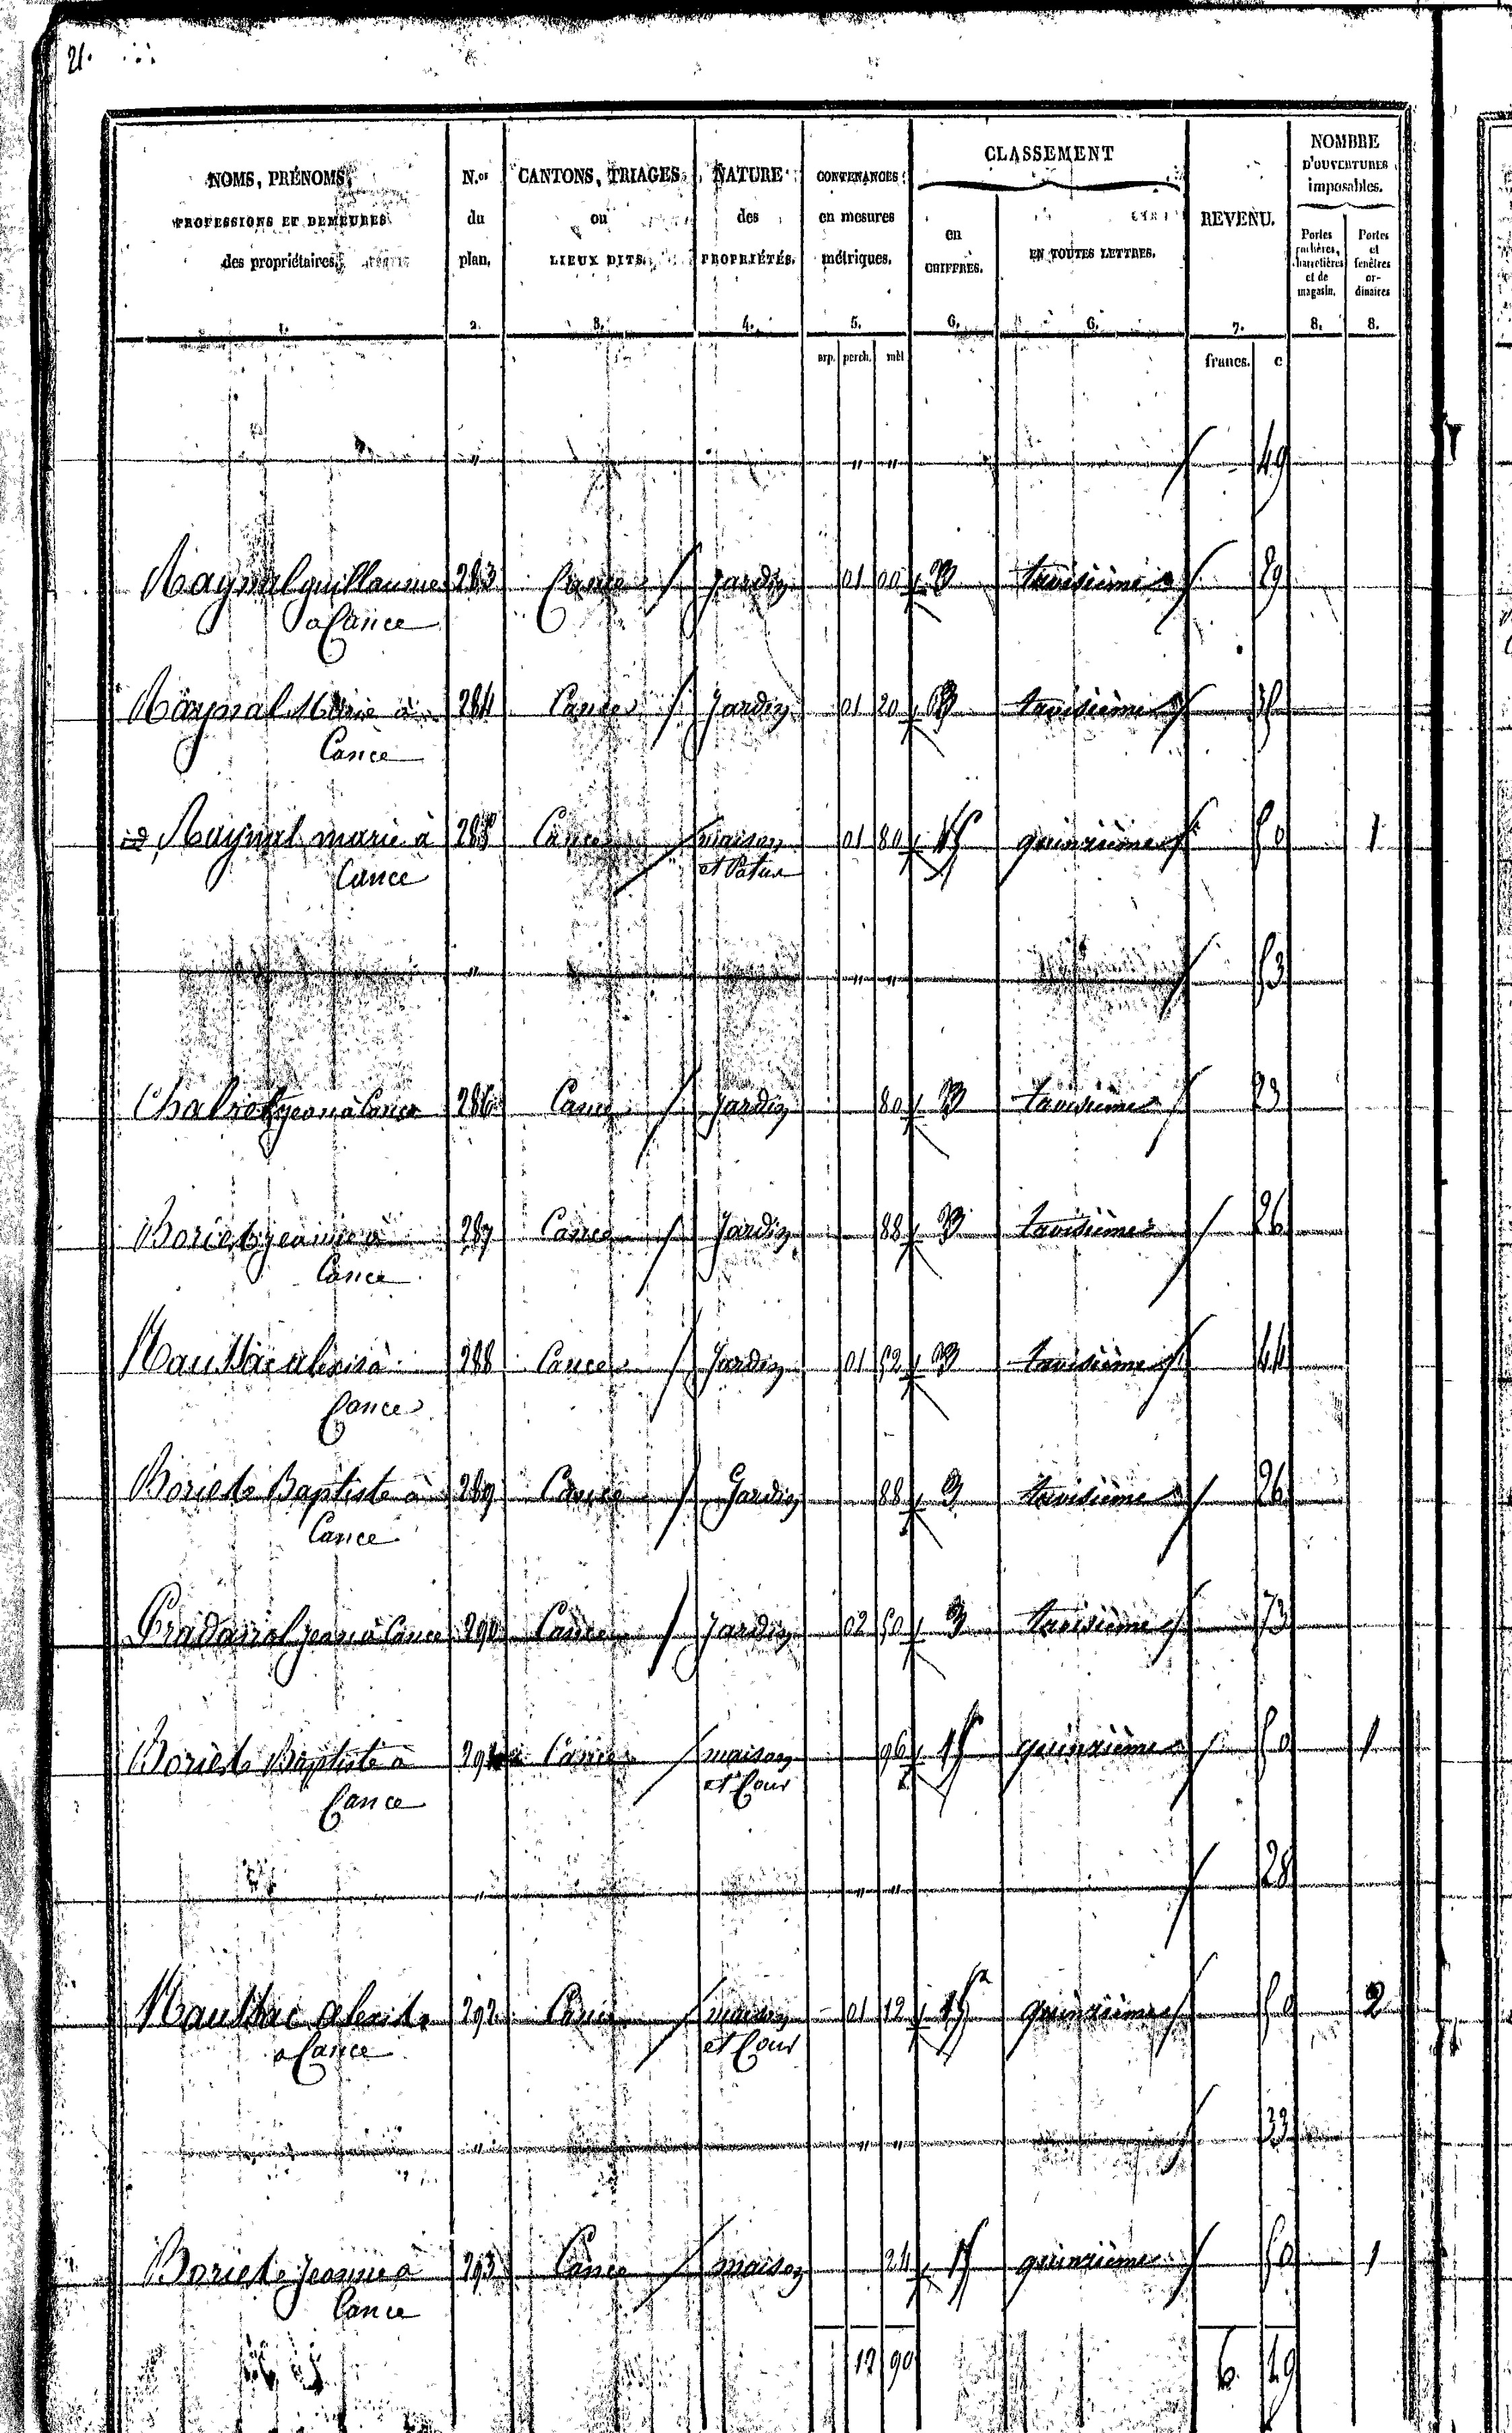 21.
NOMS, PRÉNOMS, PROFESSIONS ET DEMEURES des propriétaires. N.os du plan. CANTONS, TRIAGES ou LIEUX DITS. NATURE des PROPRIÉTÉS. CONTENANCES en mesures métriques. CLASSEMENT en CHIFFRES. EN TOUTES LETTRES. REVENU. NOMBRE D'OUVERTURES imposables. Portes cochères, charretières et de magasin. Portes et fenêtres ordinaires
1. 2. 3. 4. 5. 6. 6. 7. 8. 8.
arp. perch. mèt francs. c
" " " 49
Raynal guillaume 283 Cance jardin 01 00 3 troisième 29
a Cance
Raynal Marie à 284 Cance jardin 01 20 3 troisième
Cance
Raynal marie à 285 Cance maison 01 80 15 quinzième 50 1
Cance et Patus
" " " 53
jean à Cance 286 Cance jardin 80 3 troisième 23
jeanne à 287 Cance Jardin 88 3 troisième 26
Cance
alexis à 288 Cance Jardin 01 52 3 troisième 44
Cance
Baptiste à 289 Cance Jardin 88 3 troisième 26
Cance
jean à Cance 290 Cance jardin 02 50 3 troisième 73
Baptiste à 291 Cance maison 96 15 quinzième 50 1
Cance et Cour
" " " 28
292 Cance maison 01 12 15 quinzième 50 2
a Cance et Cour
" " " 33
Jeanne a 293 Cance maison 24 15 quinzième 50 1
Cance
12 90 6 49